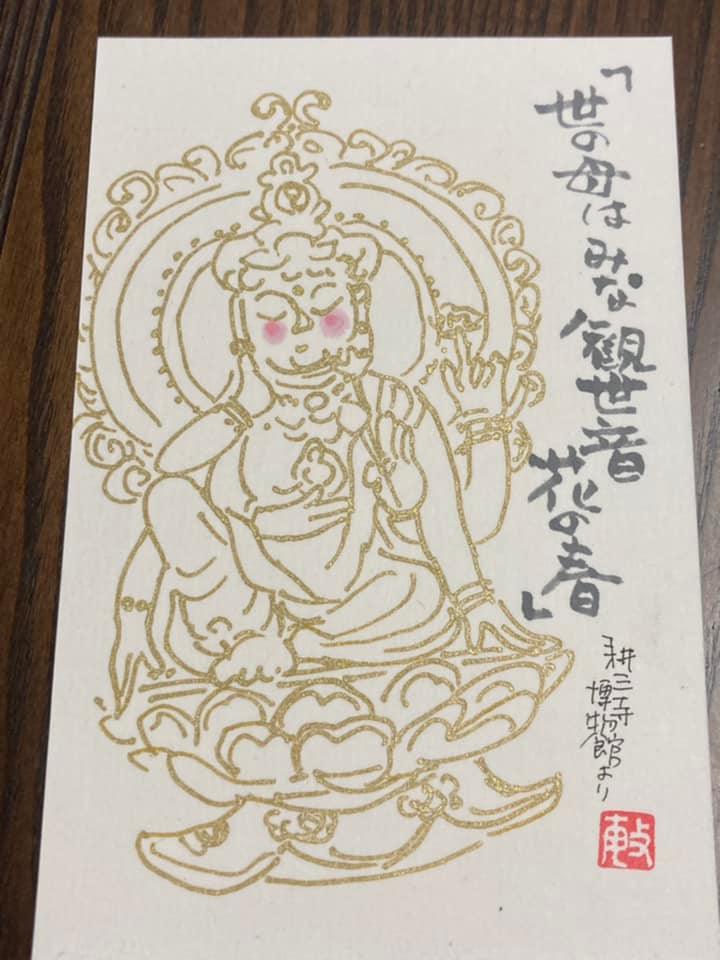 「世の母はみな観世音
花の春」
耕三寺
博物館より